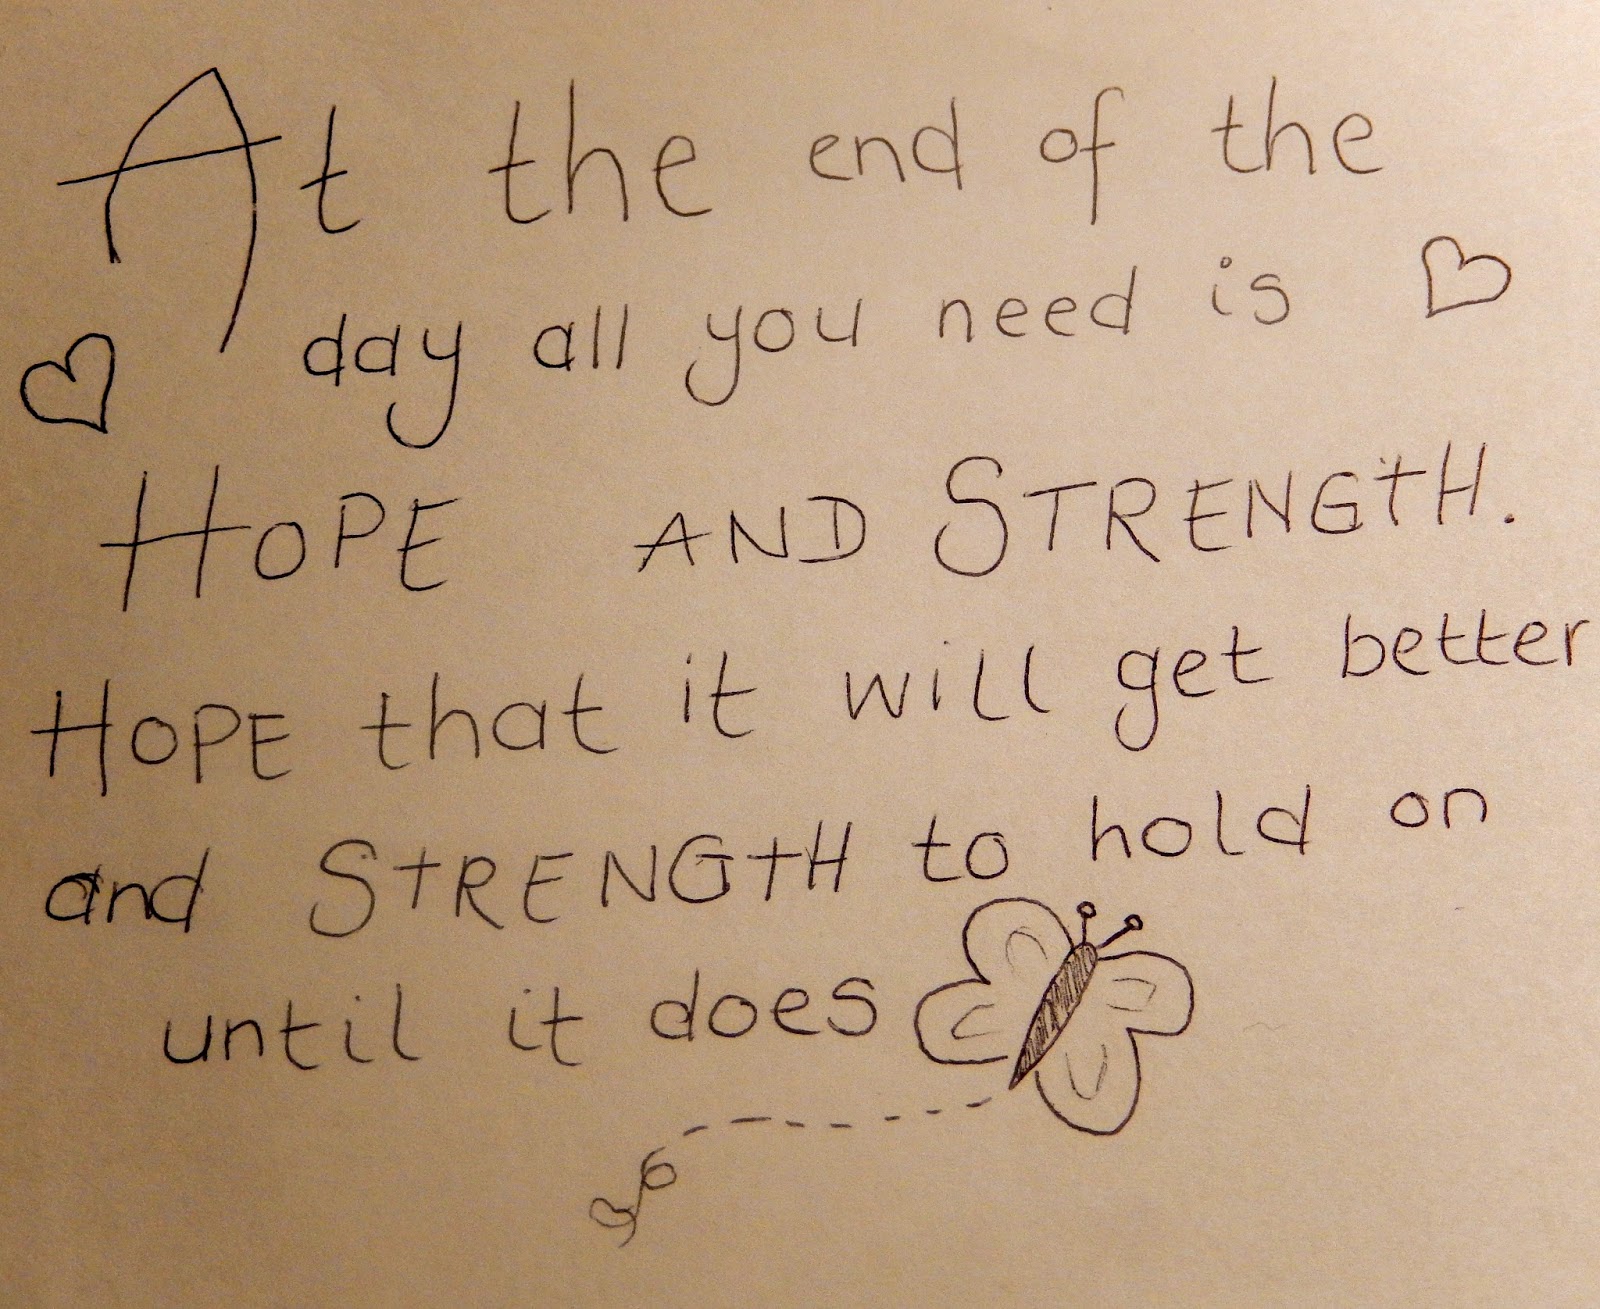 At the end of the
day all you need is
HOPE AND STRENGTH.
HOPE that it will get better
and STRENGTH to hold on
until it does